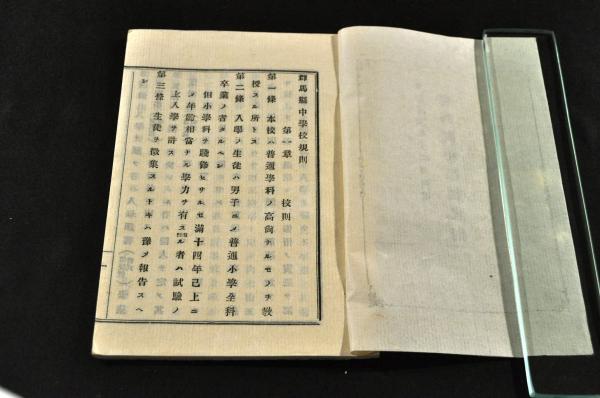 群馬縣中學校規則
第一章 校則
第一條 本校ハ普通學科ノ高尚ナルモノヲ教
授スル所トス
第二條 入學ノ生徒ハ男子ニメ普通小學全科
卒業ノ者タルヘシ
但小學科ヲ踐修セサルモ滿十四年已上ニ
ノ年齡相當ナル學力ヲ有スル者ハ試驗ノ
上入學ヲ許ス
第三條 生徒ヲ徵集スルトキハ豫メ報告スヘ
シ